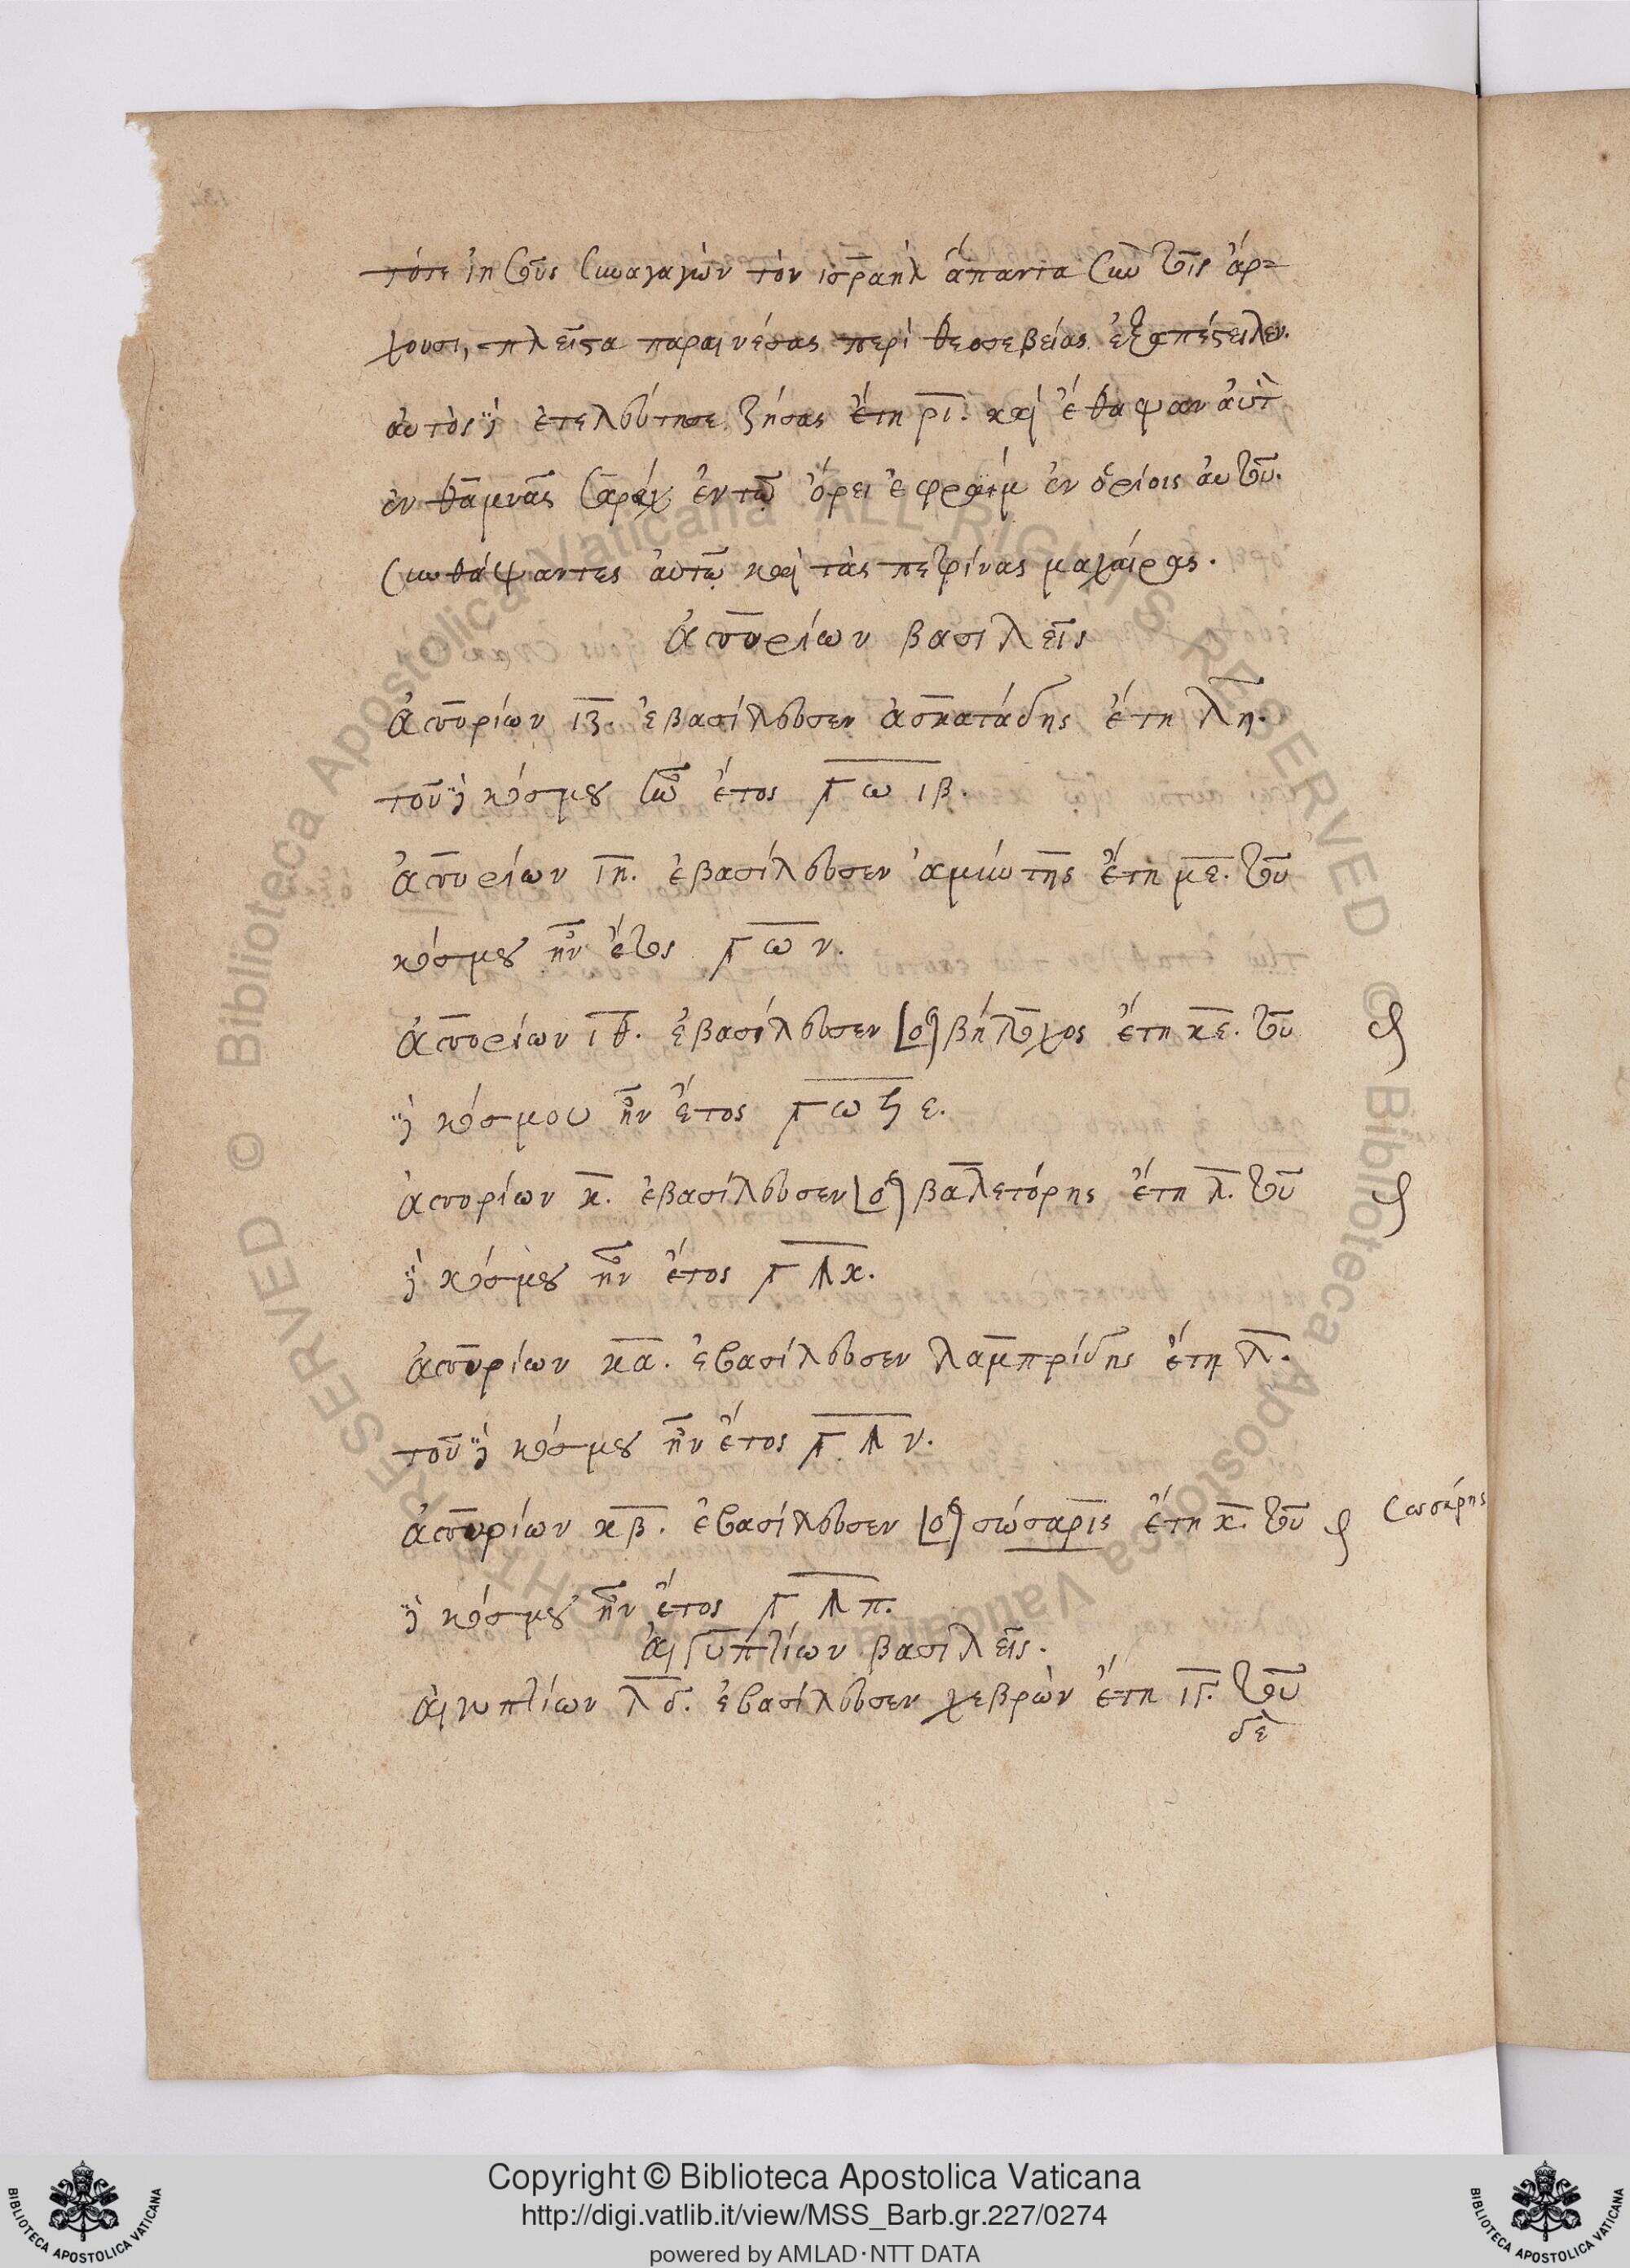 τότε ἰησοῦς συναγαγὼν τὸν ισραηλ ἅπαντα σὺν τοῖς ἄρ=
χουσι, πλεῖστα παραινέσας περὶ θεοσεβείας ἐξαπέστειλεν.
αὐτὸς δὲ ἐτελεύτησε ζήσας ἔτη ρι. καὶ ἔθαψαν αὐτὸν
ἐν θαμνᾶς σαρὰχ ἐν τῷ ὄρει ἐφραῒμ ἐν ὁρίοις αὐτοῦ.
συνθάψαντες αὐτῷ καὶ τὰς πετρίνας μαχαίρας.
ἀσσυρίων βασιλεῖς
ἀσσυρίων ιζ. ἐβασίλευσεν ἀσκατάδης ἔτη λη.
τοῦ δὲ κόσμου ἦν ἔτος ͵γωιβ.
ἀσσυρίων ιη. ἐβασίλευσεν ἀμύντης ἔτη με. τοῦ
κόσμου ἦν ἔτος ͵γων.
ἀσσυρίων ιθ. ἐβασίλευσεν [ὁ] βήτοχος ἔτη κε. τοῦ
δὲ κόσμου ἦν ἔτος ͵γωϟε.
ἀσσυρίων κ. ἐβασίλευσεν [ὁ] βαλετόρης ἔτη λ. τοῦ
δὲ κόσμου ἦν ἔτος ͵γϡκ.
ἀσσυρίων κα. ἐβασίλευσεν λαμπρίδης ἔτη λ.
τοῦ δὲ κόσμου ἦν ἔτος ͵γϡν.
ἀσσυρίων κβ. ἐβασίλευσεν [ὁ] σώσαρις ἔτη κ. τοῦ
σωσάρης
δὲ κόσμου ἦν ἔτος ͵γϡπ.
αἰγυπτίων βασιλεῖς.
αἰγυπτίων λδ. ἐβασίλευσεν χεβρὼν ἔτη ιγ. τοῦ
δὲ
Copyright © Biblioteca Apostolica Vaticana
http://digi.vatlib.it/view/MSS_Barb.gr.227/0274
powered by AMLAD·NTT DATA
BIBLIOTECA APOSTOLICA VATICANA
BIBLIOTECA APOSTOLICA VATICANA
© Biblioteca Apostolica Vaticana ALL RIGHTS RESERVED © Biblioteca Apostolica Vaticana ALL RIGHTS RESERVED